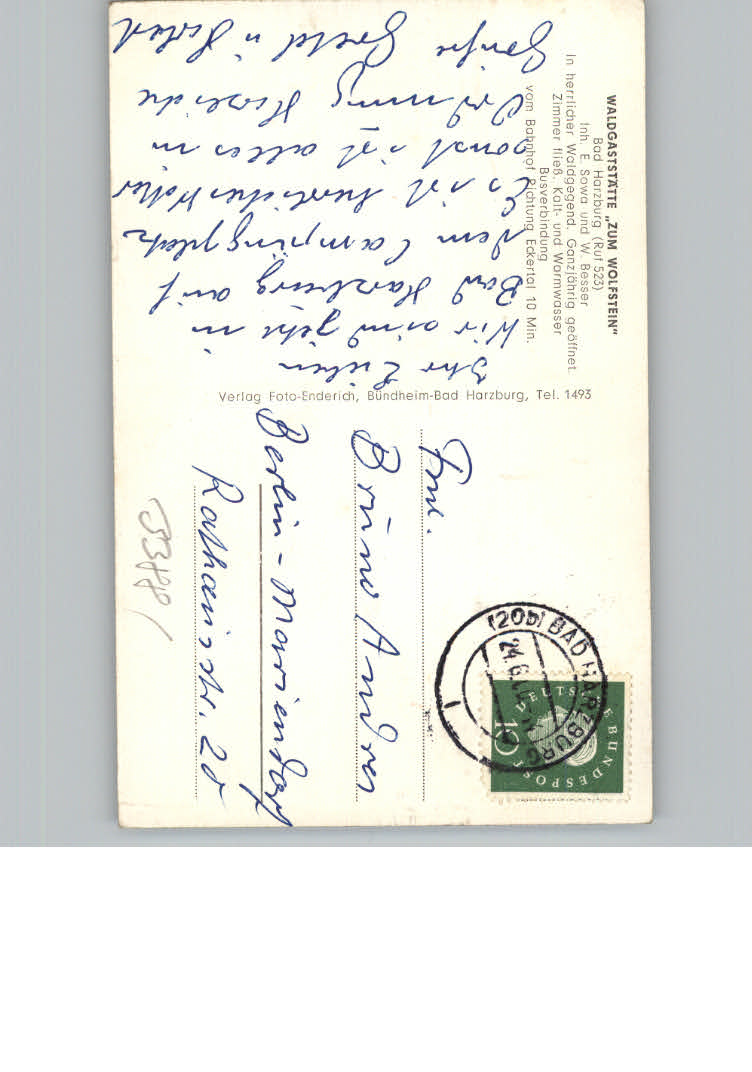 WALDGASTSTÄTTE „ZUM WOLFSTEIN"
Bad Harzburg (Ruf 523)
Inh. E. Sowa und W. Besser
In herrlicher Waldgegend. Ganzjährig geöffnet.
Zimmer fließ. Kalt- und Warmwasser
Busverbindung
vom Bahnhof Richtung Eckertal 10 Min.
Ihr Lieben
Wir sind jetzt in
Bad Harzburg auf
dem Campingplatz
Es ist herrliches Wetter
sonst ist alles in
Ordnung Herzliche
Grüße Gretel u
Verlag Foto-Enderich, Bündheim-Bad Harzburg, Tel. 1493
Fam.
Bruno Andres
Berlin - Mariendorf
Rathausstr. 20
(20b) BAD HARZBURG
1
DEUTSCHE BUNDESPOST
10